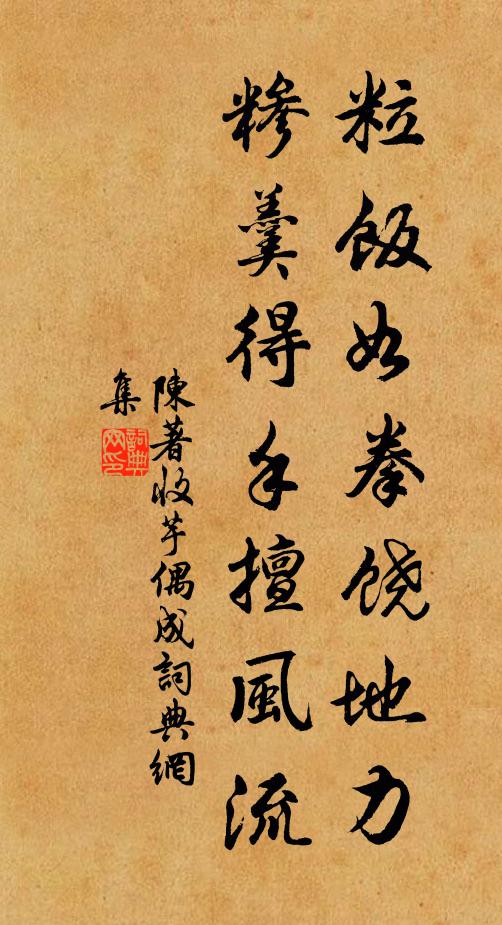 粒飯如拳饒地力
糝羹得手擅風流
陳著收芋偶成詞典網
集
詞典
网印